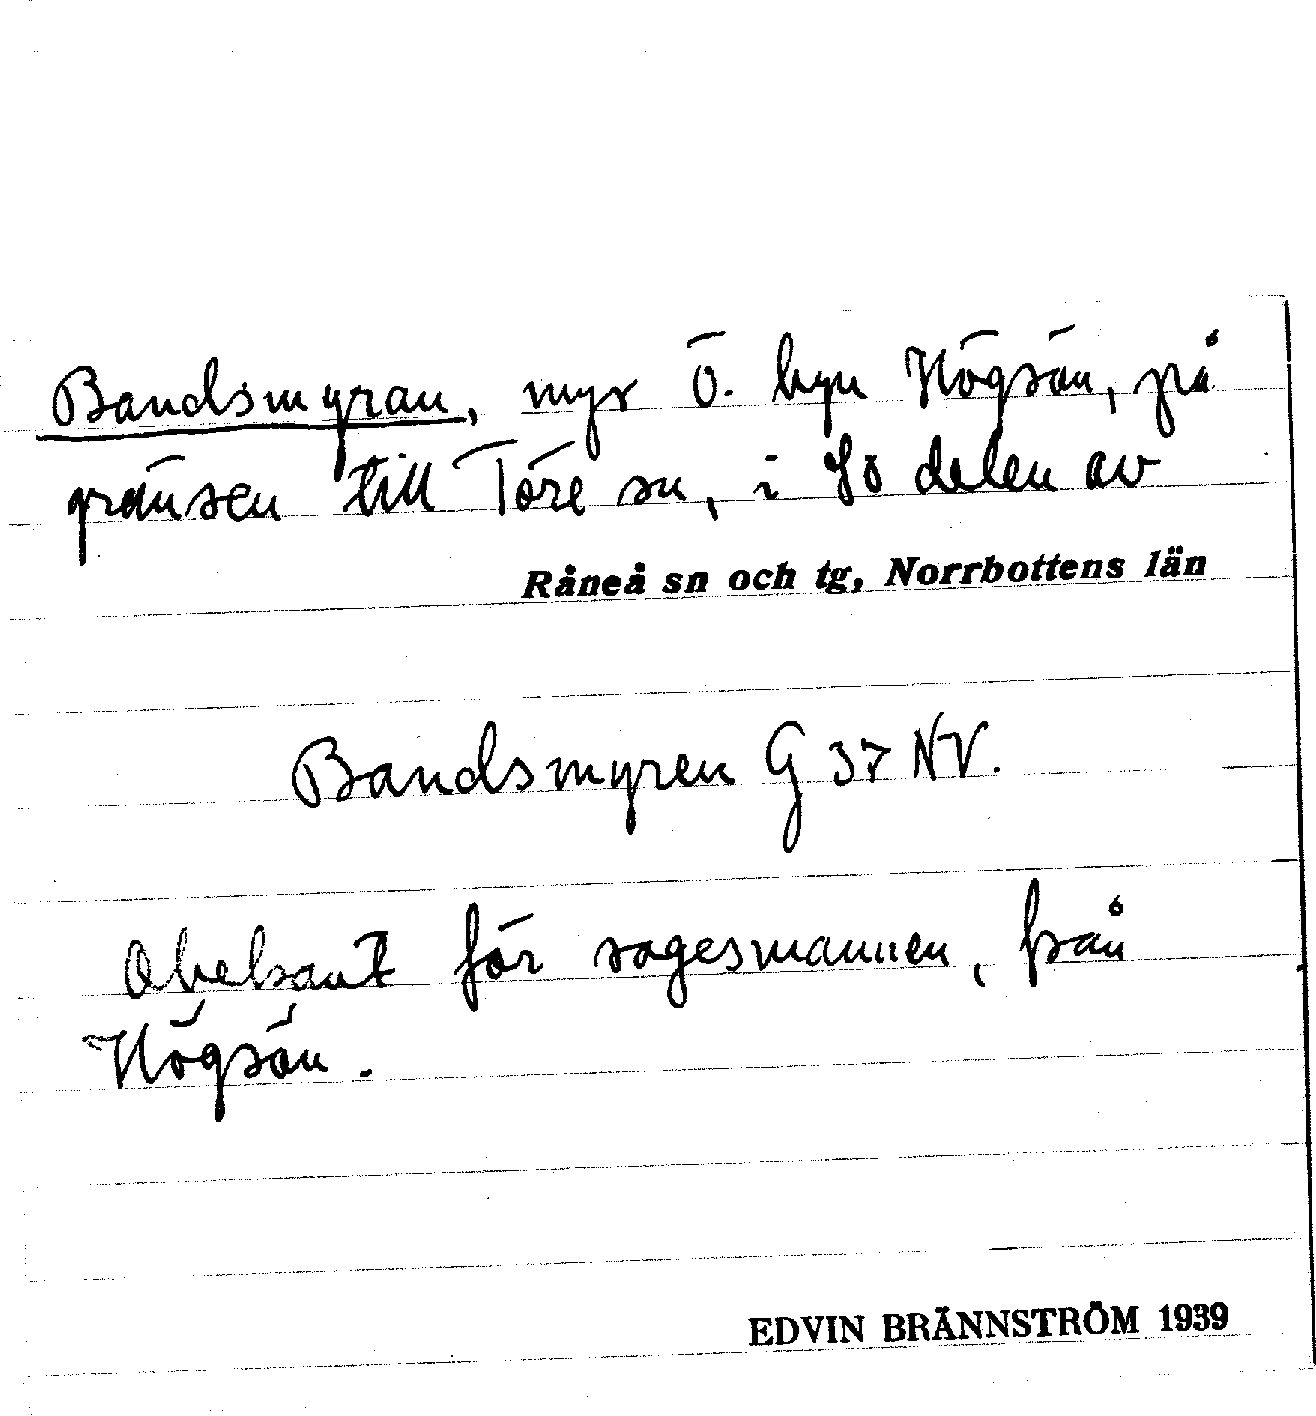 Bandsmyran, myr Ö. byn Högsön, på
gränsen till Töre sn, i SÖ delen av
Råneå sn och tg, Norrbottens län
Bandsmyren G 37 NV.
Obekant för sagesmannen, från
Högsön.
EDVIN BRÄNNSTRÖM 1939